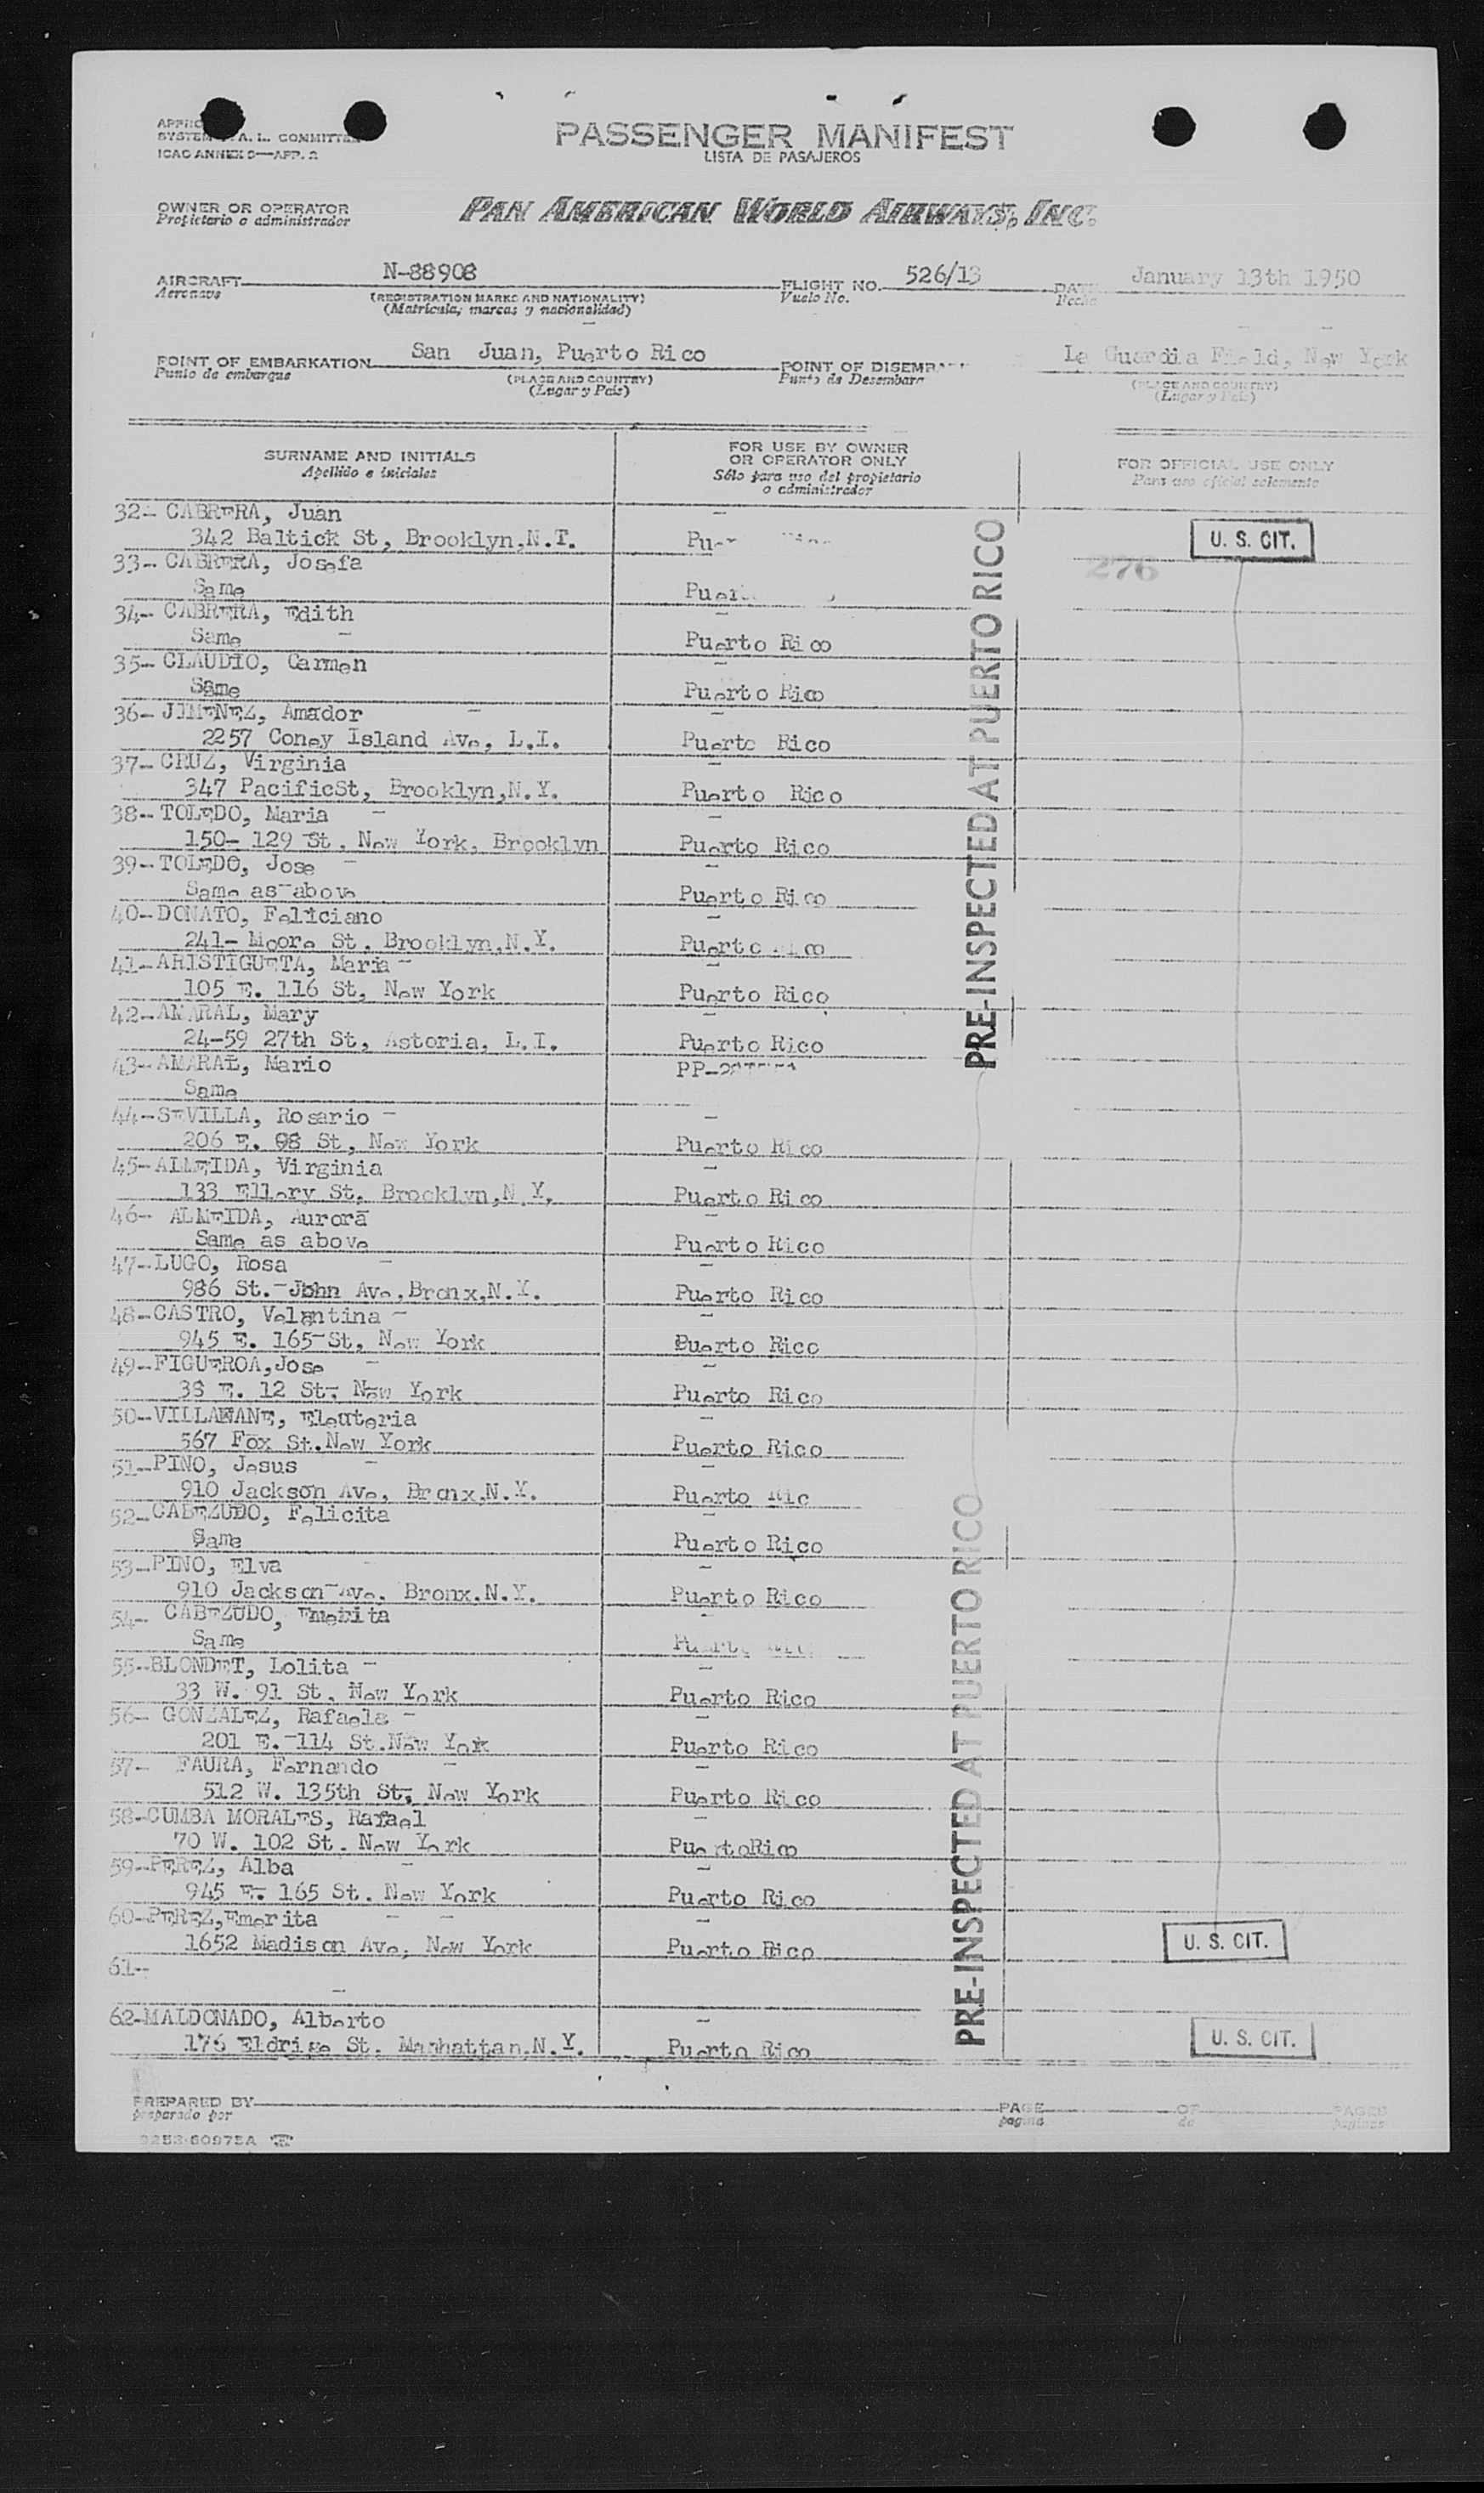 PASSENGER MANIFEST
LISTA DE PASAJEROS
A. L. COMMITTEE
ICAO ANNEX 9—APP. 2
OWNER OR OPERATOR
Propietario o administrador
PAN AMERICAN WORLD AIRWAYS, INC.
AIRCRAFT N-88908 FLIGHT NO. 526/13 DATE January 13th 1950
Aeronave (REGISTRATION MARKS AND NATIONALITY) Vuelo No. Fecha
(Matricula, marcas y nacionalidad)
POINT OF EMBARKATION San Juan, Puerto Rico POINT OF La Guardia Field, New York
Punto de embarque (PLACE AND COUNTRY) Punto de (PLACE AND COUNTRY)
(Lugar y País) (Lugar y País)
SURNAME AND INITIALS
Apellido e iniciales
FOR USE BY OWNER
OR OPERATOR ONLY
Sólo para uso del propietario
o administrador
FOR OFFICIAL USE ONLY
Para uso oficial solamente
32- CABRERA, Juan
342 Baltick St, Brooklyn,N.T. U. S. CIT.
33- CABRERA, Josefa 276
Same
34- CABRERA, Edith
Same Puerto Rico
35- CLAUDIO, Carmen
Same Puerto Rico
36- JIMENEZ, Amador
2257 Coney Island Ave, L.I. Puerto Rico
37- CRUZ, Virginia
347 PacificSt, Brooklyn,N.Y. Puerto Rico
38- TOLEDO, Maria
150- 129 St, New York, Brooklyn Puerto Rico
39- TOLEDO, Jose
Same as above Puerto Rico
40- DONATO, Feliciano
241- Moore St, Brooklyn,N.Y. Puerto Rico
41- ARISTIGUETA, Maria
105 E. 116 St, New York Puerto Rico
42- AMARAL, Mary
24-59 27th St, Astoria, L.I. Puerto Rico
43- AMARAL, Mario
Same
44- SEVILLA, Rosario
206 E. 98 St, New York Puerto Rico
45- ALMEIDA, Virginia
133 Ellery St, Brooklyn,N.Y. Puerto Rico
46- ALMEIDA, Aurora
Same as above Puerto Rico
47- LUGO, Rosa
986 St. John Ave, Bronx,N.Y. Puerto Rico
48- CASTRO, Velentina
945 E. 165 St, New York Puerto Rico
49- FIGUEROA,Jose
38 E. 12 St, New York Puerto Rico
50- VILLAFANE, Eleuteria
567 Fox St.New York Puerto Rico
51- PINO, Jesus
910 Jackson Ave, Bronx,N.Y. Puerto Ric
52- CABEZUDO, Felicita
Same Puerto Rico
53- PINO, Elva
910 Jackson Ave, Bronx.N.Y. Puerto Rico
54- CABEZUDO, Emerita
Same
55- BLONDET, Lolita
33 W. 91 St, New York Puerto Rico
56- GONZALEZ, Rafaela
201 E. 114 St.New York Puerto Rico
57- FAURA, Fernando
512 W. 135th St, New York Puerto Rico
58- CUMBA MORALES, Rafael
70 W. 102 St. New York PuertoRico
59- PEREZ, Alba
945 E. 165 St. New York Puerto Rico
60- PEREZ,Emerita
1652 Madison Ave, New York Puerto Rico U. S. CIT.
61-
62- MALDONADO, Alberto
176 Eldrige St. Manhattan,N.Y. Puerto Rico U. S. CIT.
PRE-INSPECTED AT PUERTO RICO
PRE-INSPECTED AT PUERTO RICO
PREPARED BY PAGE OF PAGES
preparado por pagina de paginas
9253-60975A